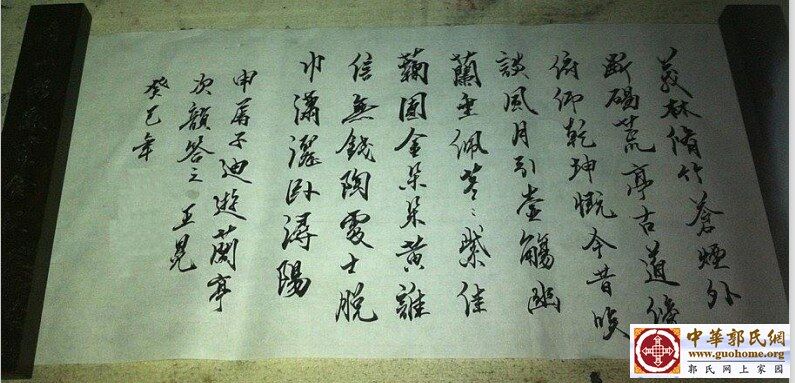 茂林脩竹蒼煙外
斷碣荒亭古道傍
俯仰乾坤慨今昔咲
談風月引壺觴幽
蘭垂佩苕々紫佳
菊團金朵朵黃誰
信無錢陶處士脫
巾瀟灑臥潯陽
申屠子迪遊蘭亭
次韻答之 王冕
癸巳年
中華郭氏網
www.guohome.org
郭氏网上家园